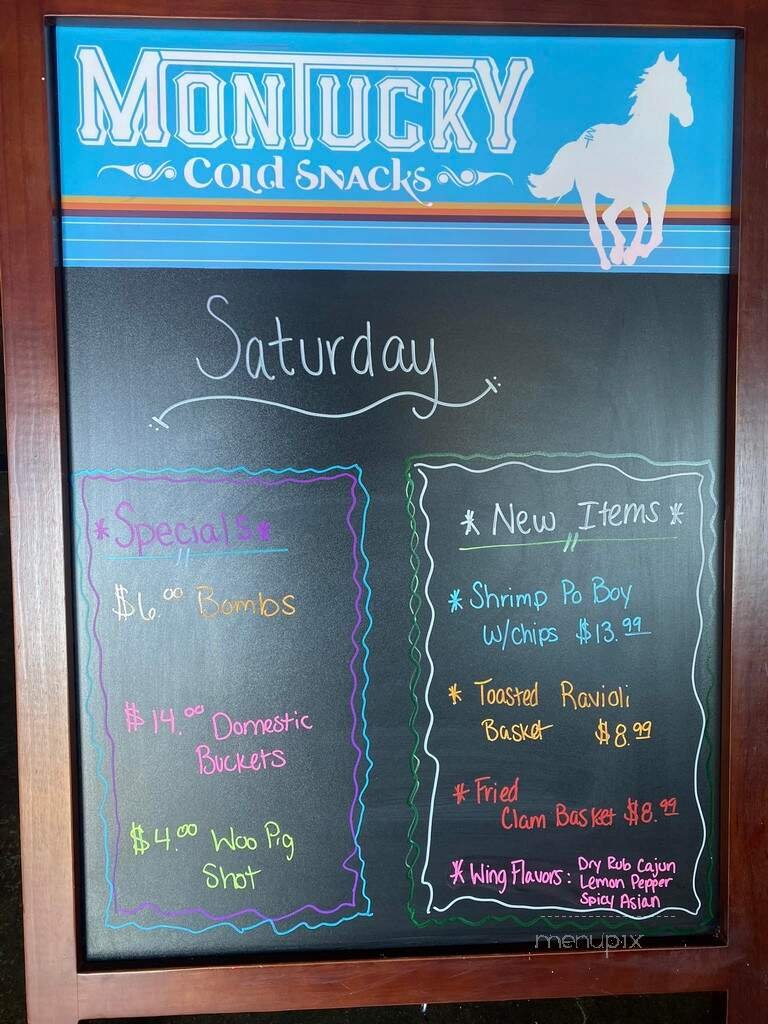 MONTUCKY
COLD SNACKS
Saturday
*Specials*
$6.00 Bombs
$14.00 Domestic
Buckets
$4.00 Woo Pig
Shot
* New Items *
* Shrimp Po Boy
w/chips $13.99
* Toasted Ravioli
Basket $8.99
* Fried
Clam Basket $8.99
* Wing Flavors: Dry Rub Cajun
Lemon Pepper
Spicy Asian
menupix